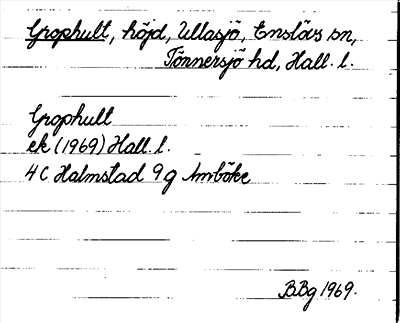 Grophult, höjd, Ullasjö, Enslövs sn,
Tönnersjö hd, Hall. l.
Grophult
ek (1969) Hall. l.
4 C Halmstad 9 g Amböke
BBg 1969.